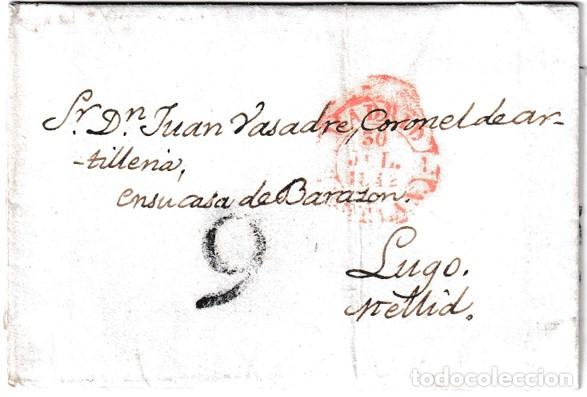 Sr. Dn. Juan Vasadre, Coronel de ar-
-tilleria,
en su casa de Barazon.
Lugo.
Mellid.
9
30
JUL.
1842
todocoleccion
todocoleccion.net